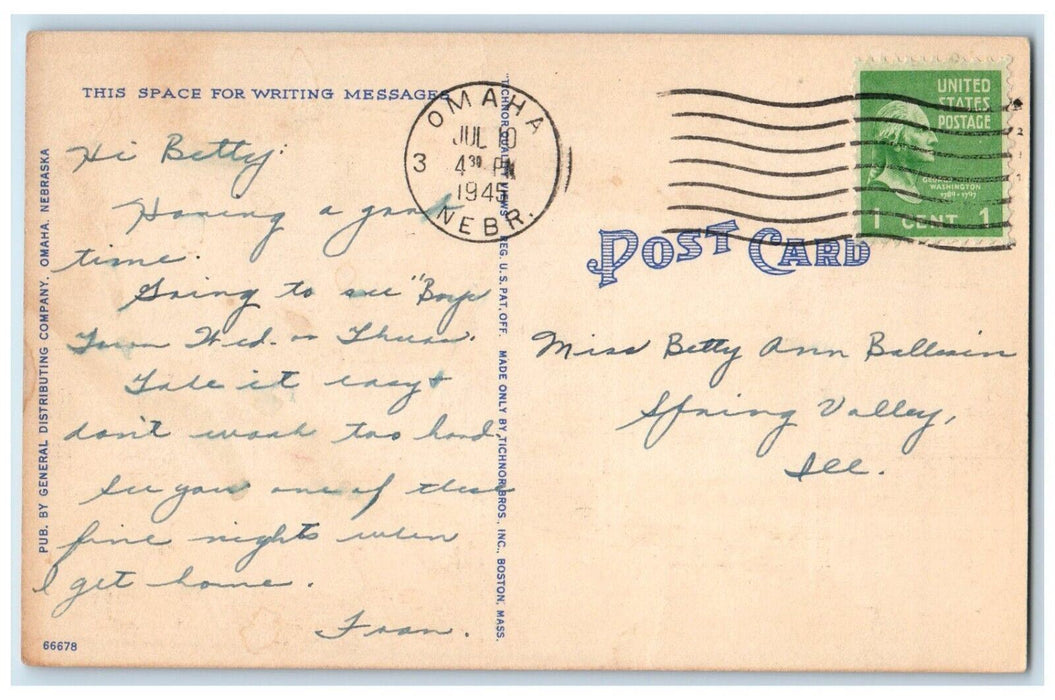 THIS SPACE FOR WRITING MESSAGES
Hi Betty:
Having a good
time.
Going to see "Boys
Town Wed. or Thurs.
Take it easy +
don't work too hard,
See you one of these
fine nights when
I get home.
Fran.
66678
PUB. BY GENERAL DISTRIBUTING COMPANY, OMAHA, NEBRASKA
TICHNOR QUALITY VIEWS REG. U.S. PAT. OFF. MADE ONLY BY TICHNOR BROS., INC., BOSTON, MASS.
OMAHA
JUL 10
3 4 30 PM
1945
NEBR.
UNITED
STATES
POSTAGE
GEORGE WASHINGTON
1789-1797
1 CENT 1
POST CARD
Miss Betty Ann
Spring Valley,
Ill.